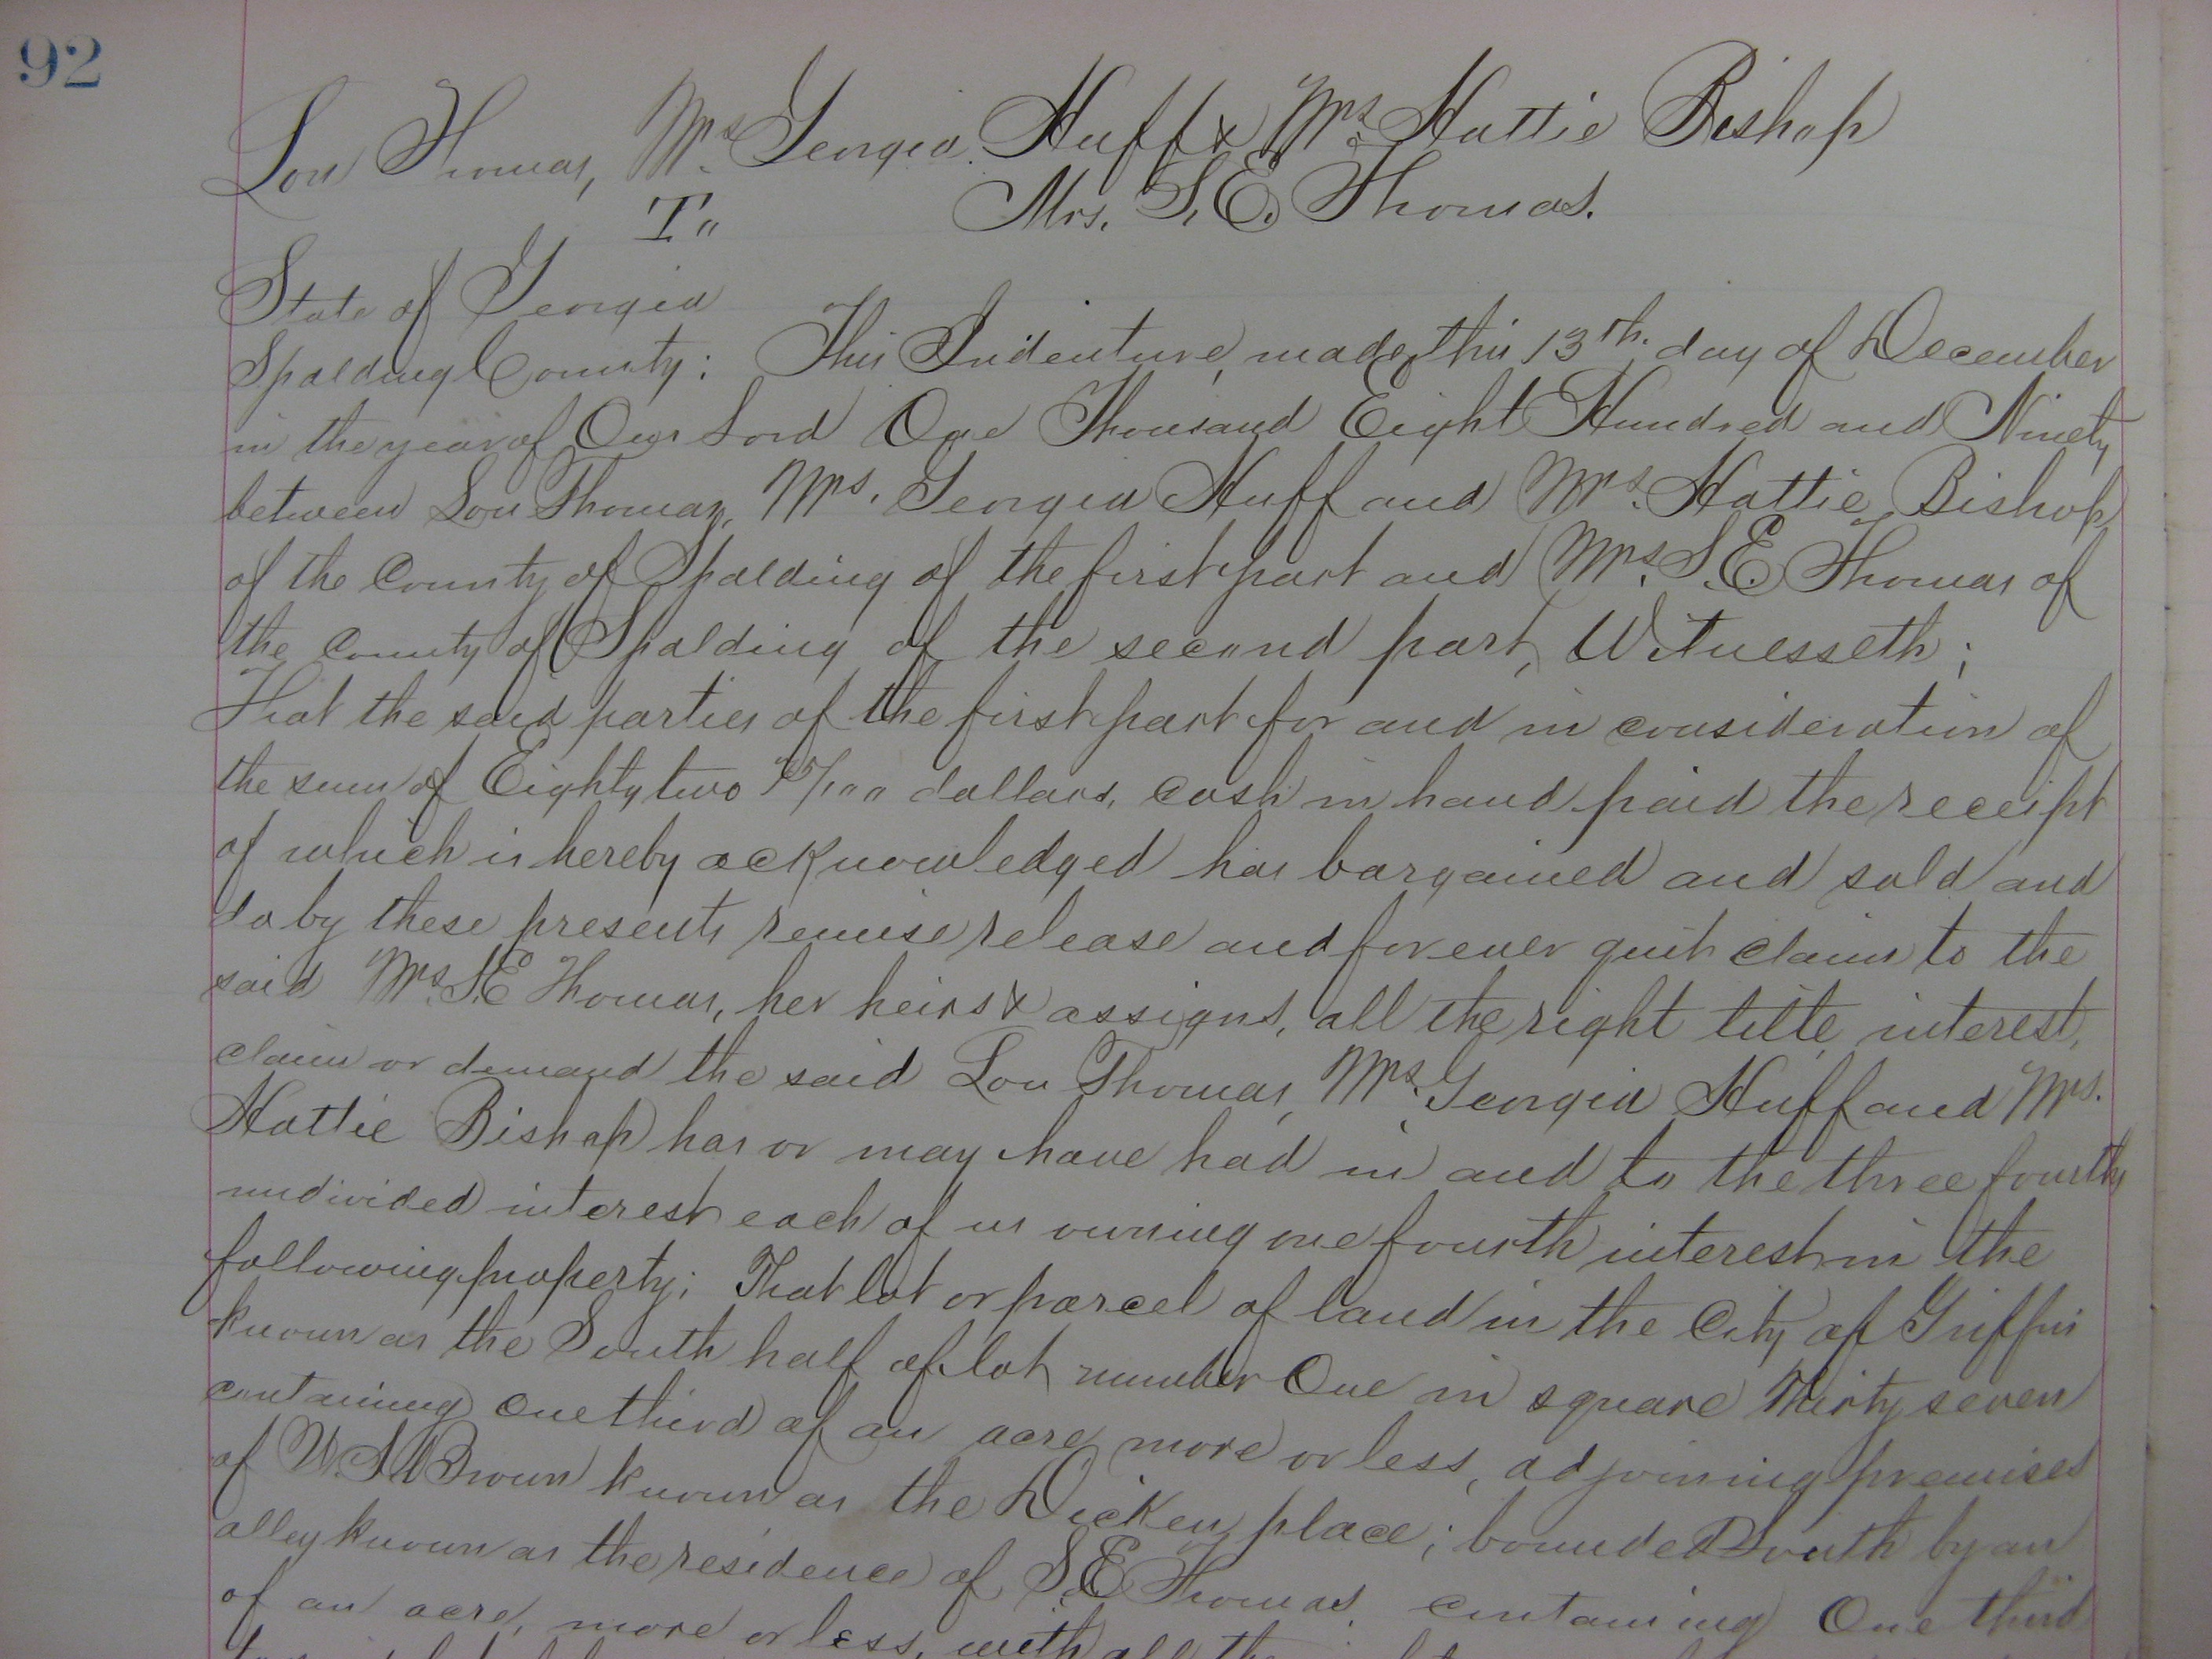 92
Lou Thomas, Mrs. Georgia Huff & Mrs. Hattie Bishop
To Mrs. S. E. Thomas.
State of Georgia
Spalding County: This Indenture, made this 13th. day of December
in the year of Our Lord One Thousand Eight Hundred and Ninety
between Lou Thomas, Mrs. Georgia Huff and Mrs. Hattie Bishop,
of the County of Spalding of the first part and Mrs. S. E. Thomas of
the County of Spalding of the second part, Witnesseth;
That the said parties of the first part for and in consideration of
the sum of Eighty two /100 dollars, cash in hand paid the receipt
of which is hereby acknowledged has bargained and sold and
do by these presents remise release and forever quit claim to the
said Mrs. S. E Thomas, her heirs & assigns, all the right title, interest,
claim or demand the said Lou Thomas, Mrs. Georgia Huff and Mrs.
Hattie Bishop has or may have had in and to the three fourths
undivided interest each of us owning one fourth interest in the
following property; That lot or parcel of land in the City of Griffin
known as the South half of lot number One in square Thirty seven
containing one third of an acre more or less, adjoining premises
of Brown known as the Dicken place; bounded South by an
alley known as the residence of S. E Thomas, containing One third
of an acre, more or less, with all the